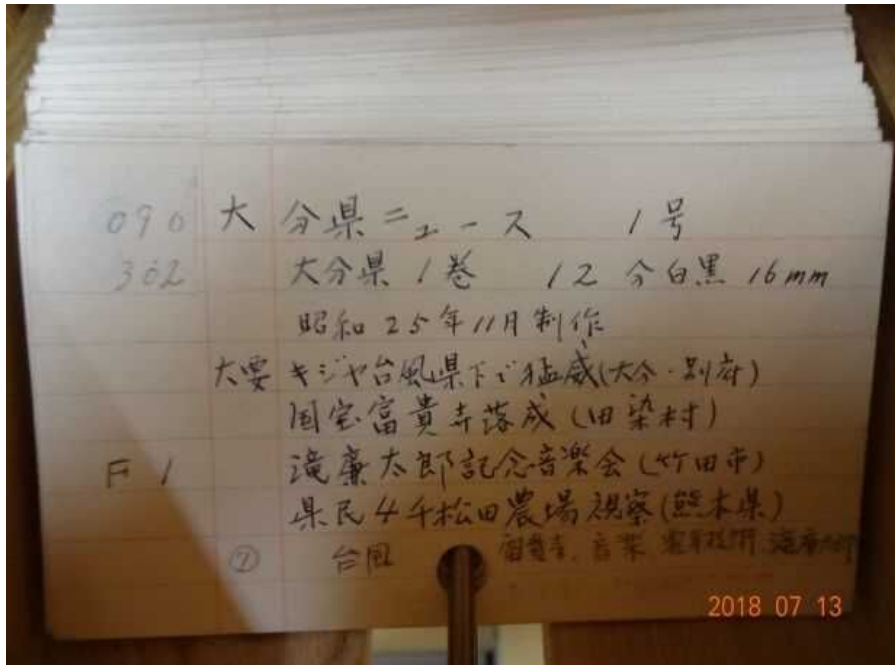 090 大 分県ニュース 1号
302 大分県 1巻 12分 白黒 16mm
昭和25年11月制作
大要 キジヤ台風県下で猛威(大分・別府)
国宝富貴寺落成(田染村)
F1 滝廉太郎記念音楽会(竹田市)
県民4千松田農場視察(熊本県)
⑦ 台風 富貴寺、音楽
2018 07 13